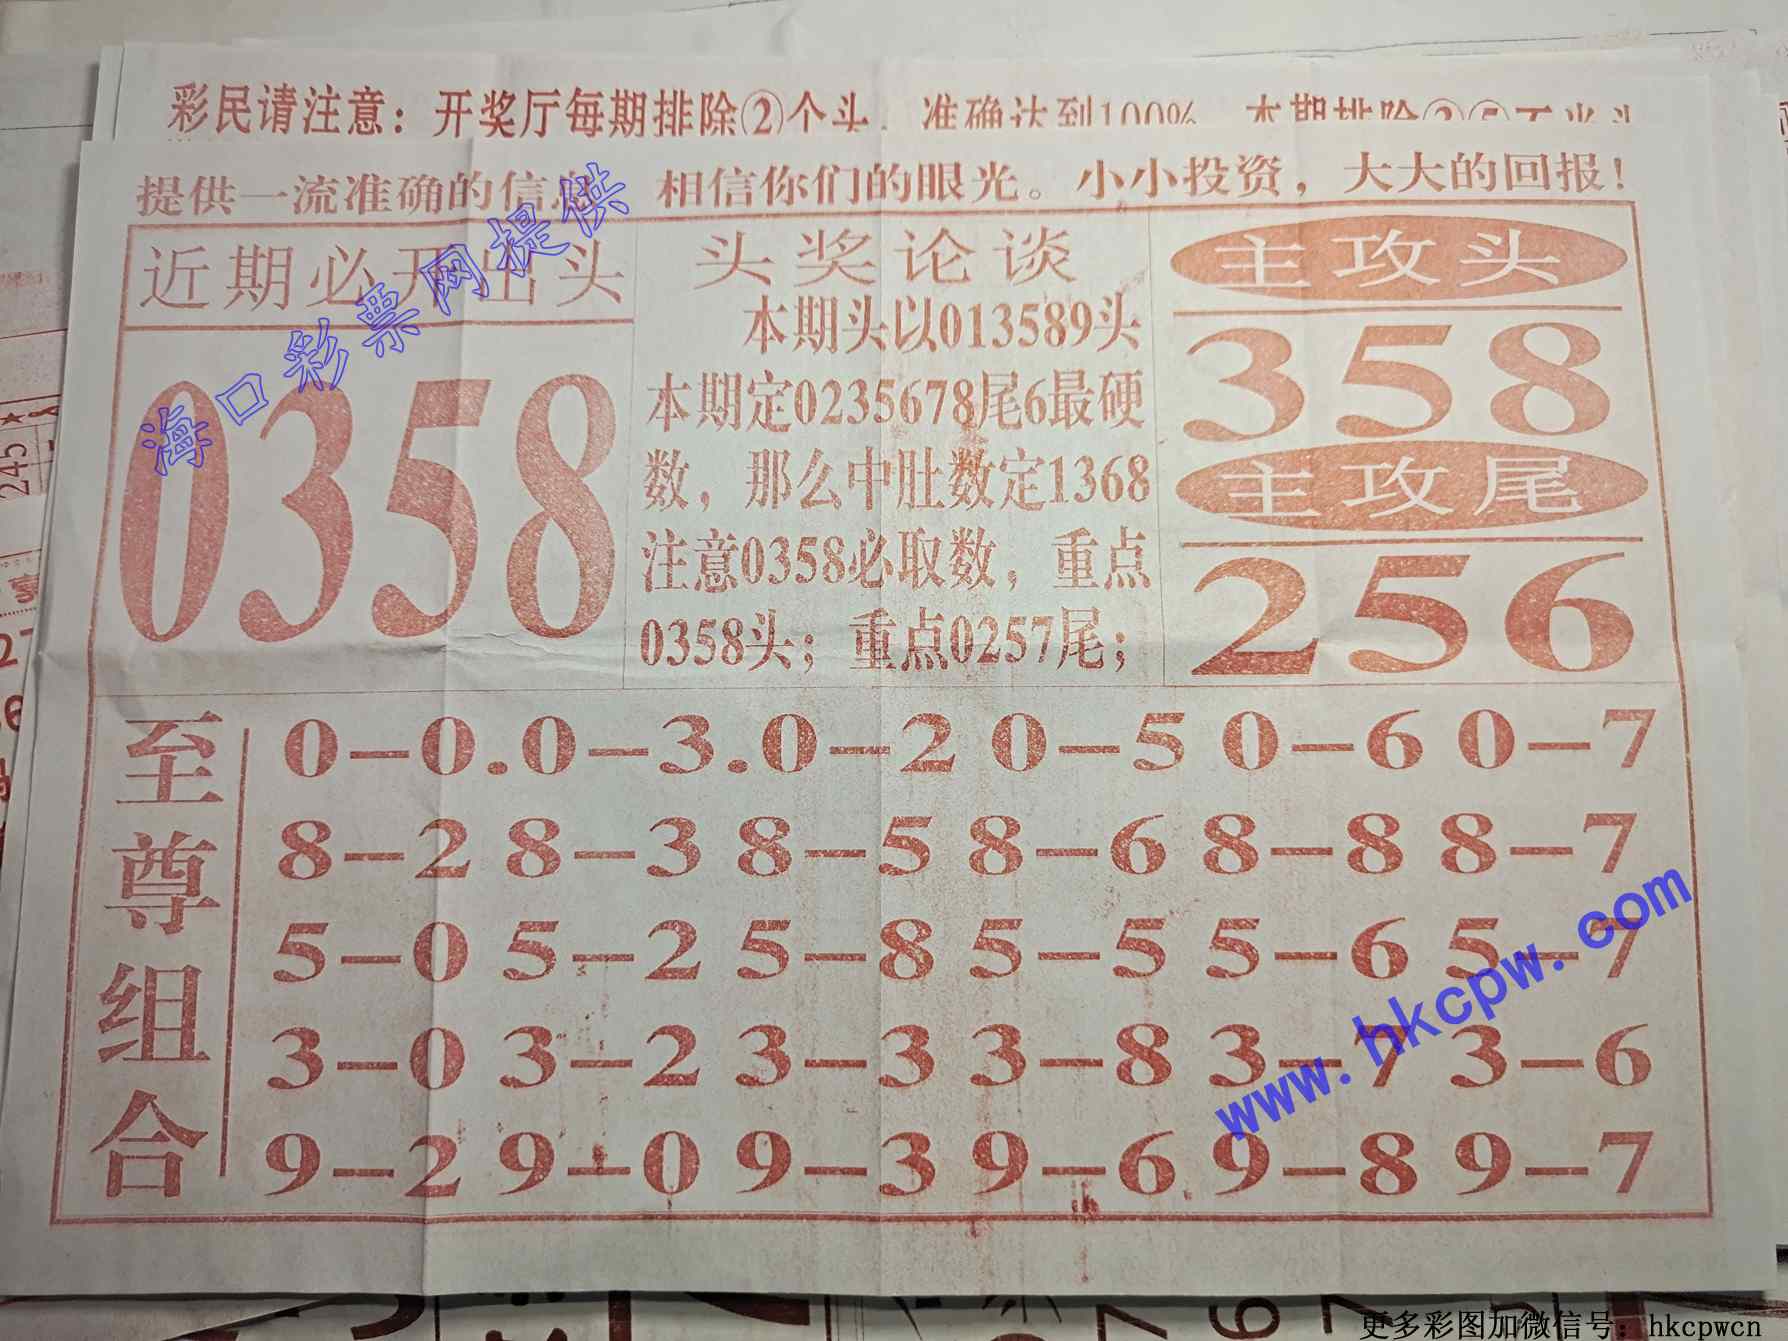 彩民请注意：开奖厅每期排除②个头，准确达到100%
提供一流准确的信息 相信你们的眼光。小小投资，大大的回报！
近期必开出头
0358
头奖论谈
本期头以013589头
本期定0235678尾6最硬
数，那么中肚数定1368
注意0358必取数，重点
0358头；重点0257尾；
主攻头
358
主攻尾
256
至尊组合
0-0.0-3.0-2 0-5 0-6 0-7
8-2 8-3 8-5 8-6 8-8 8-7
5-0 5-2 5-8 5-5 5-6 5-7
3-0 3-2 3-3 3-8 3-7 3-6
9-2 9-0 9-3 9-6 9-8 9-7
海口彩票网提供
www.hkcpw.com
更多彩图加微信号：hkcpwcn
245